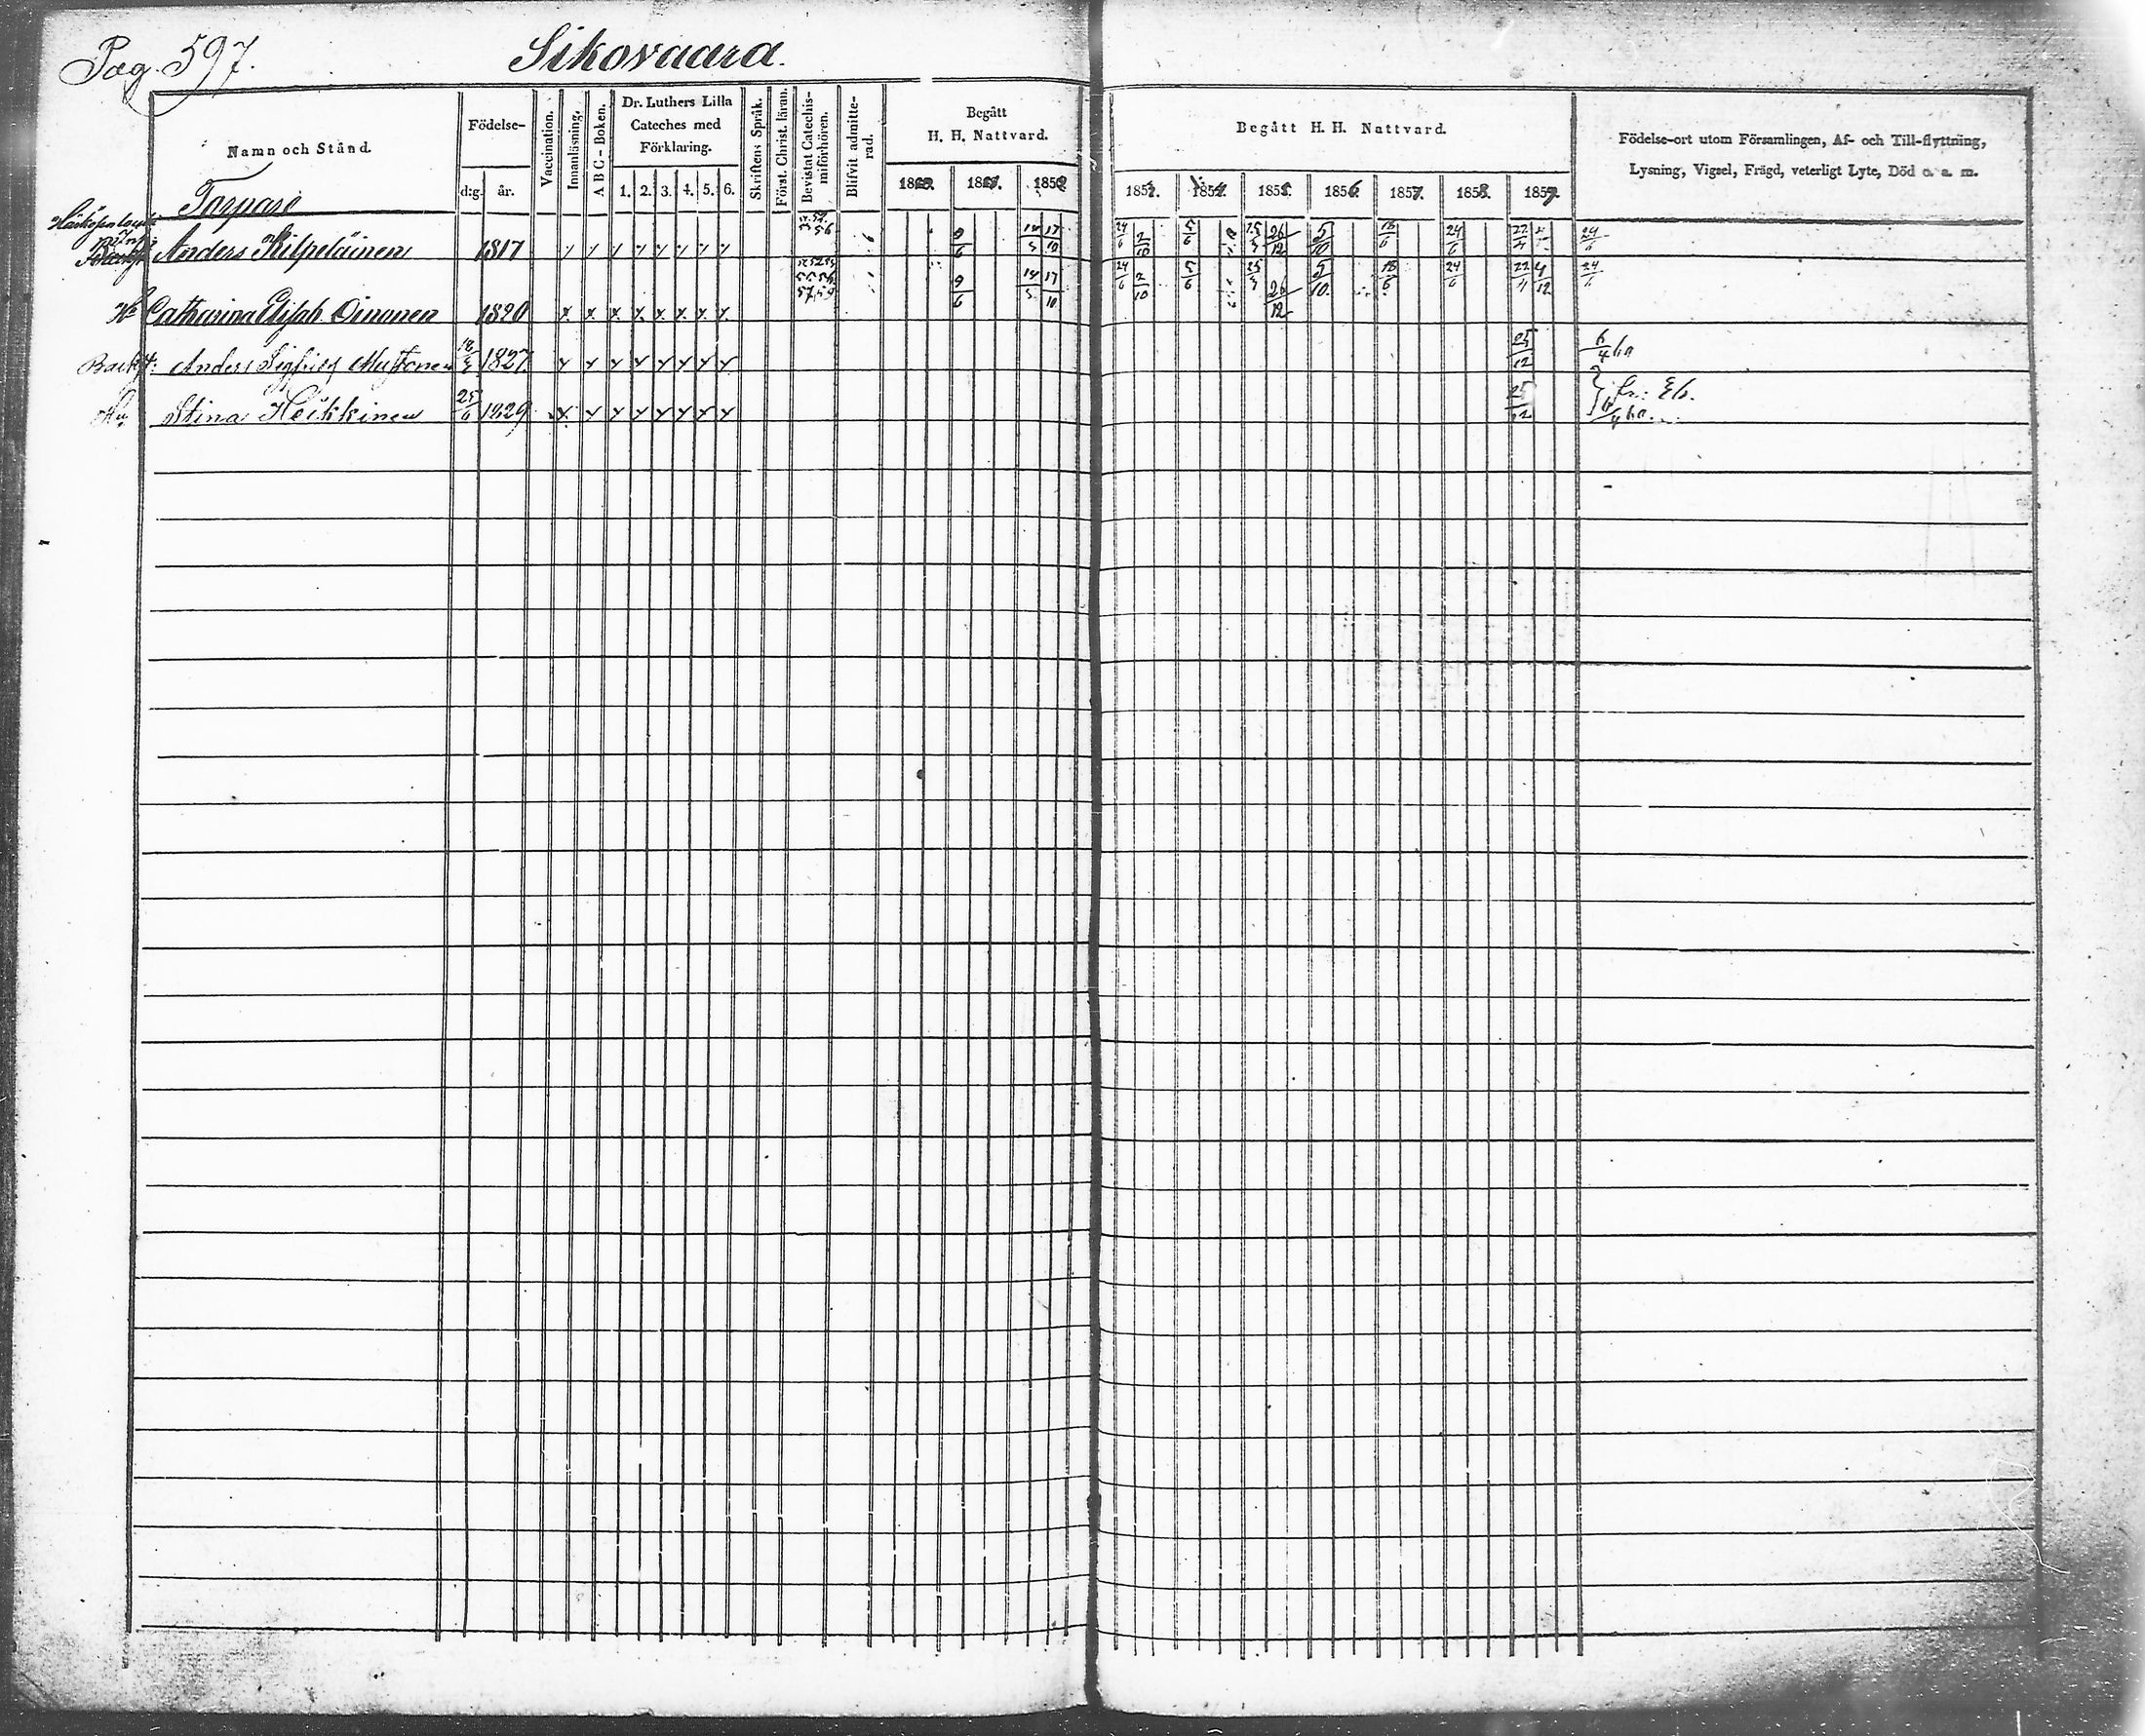 Pag. 597.
Sikovaara.
Namn och Stånd.
Födelse-
d:g. år.
Vaccination.
Innanläsning.
A B C - Boken.
Dr. Luthers Lilla
Cateches med
Förklaring.
1. 2. 3. 4. 5. 6.
Skriftens Språk.
Först. Christ. läran.
Bevistat Catechis-
miförhören.
Blifvit admitte-
rad.
Begått
H. H. Nattvard.
Begått H. H. Nattvard.
1853. 1854. 1855. 1856. 1857. 1858. 1859.
Födelse-ort utom Församlingen, Af- och Till-flyttning,
Lysning, Vigsel, Frägd, veterligt Lyte, Död o. a. m.
Torpare
Anders Kilpeläinen 1817 9/6 14/5 17/10 24/6 2/10 5/6 25/3 26/12 5/10 18/6 24/6 22/4 24/6
Catharina Elisab. Oinonen 1820 x x x x x x x x 9/6 14/5 17/10 24/6 2/10 5/6 25/3 26/12 5/10. 18/6 24/6 22/4 4/12
Anders Sigfrid Mustonen 1827 25/12 6/4
Hu Stina Heikkinen 25/6 1829 25/12 6/4